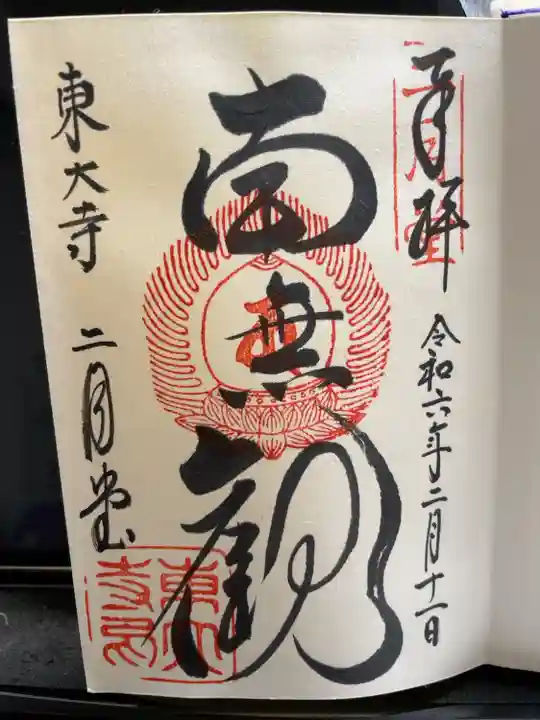 奉拝
二月堂
令和六年二月十一日
南無観
東大寺 二月堂